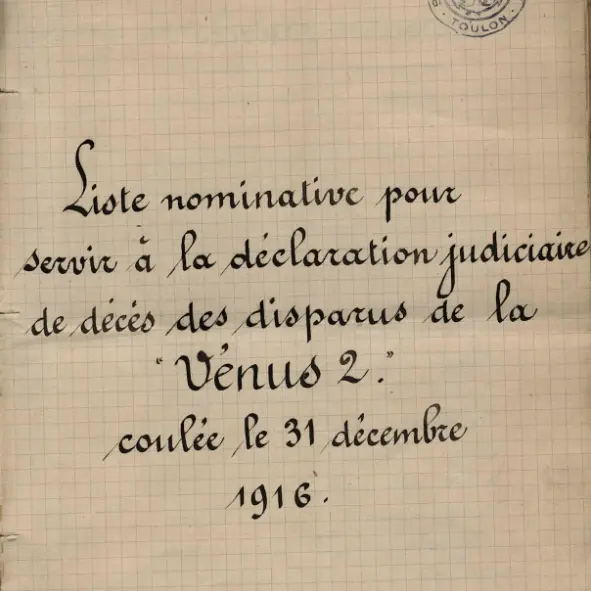 TOULON
Liste nominative pour
servir à la déclaration judiciaire
de décés des disparus de la
"Vénus 2."
coulée le 31 décembre
1916.